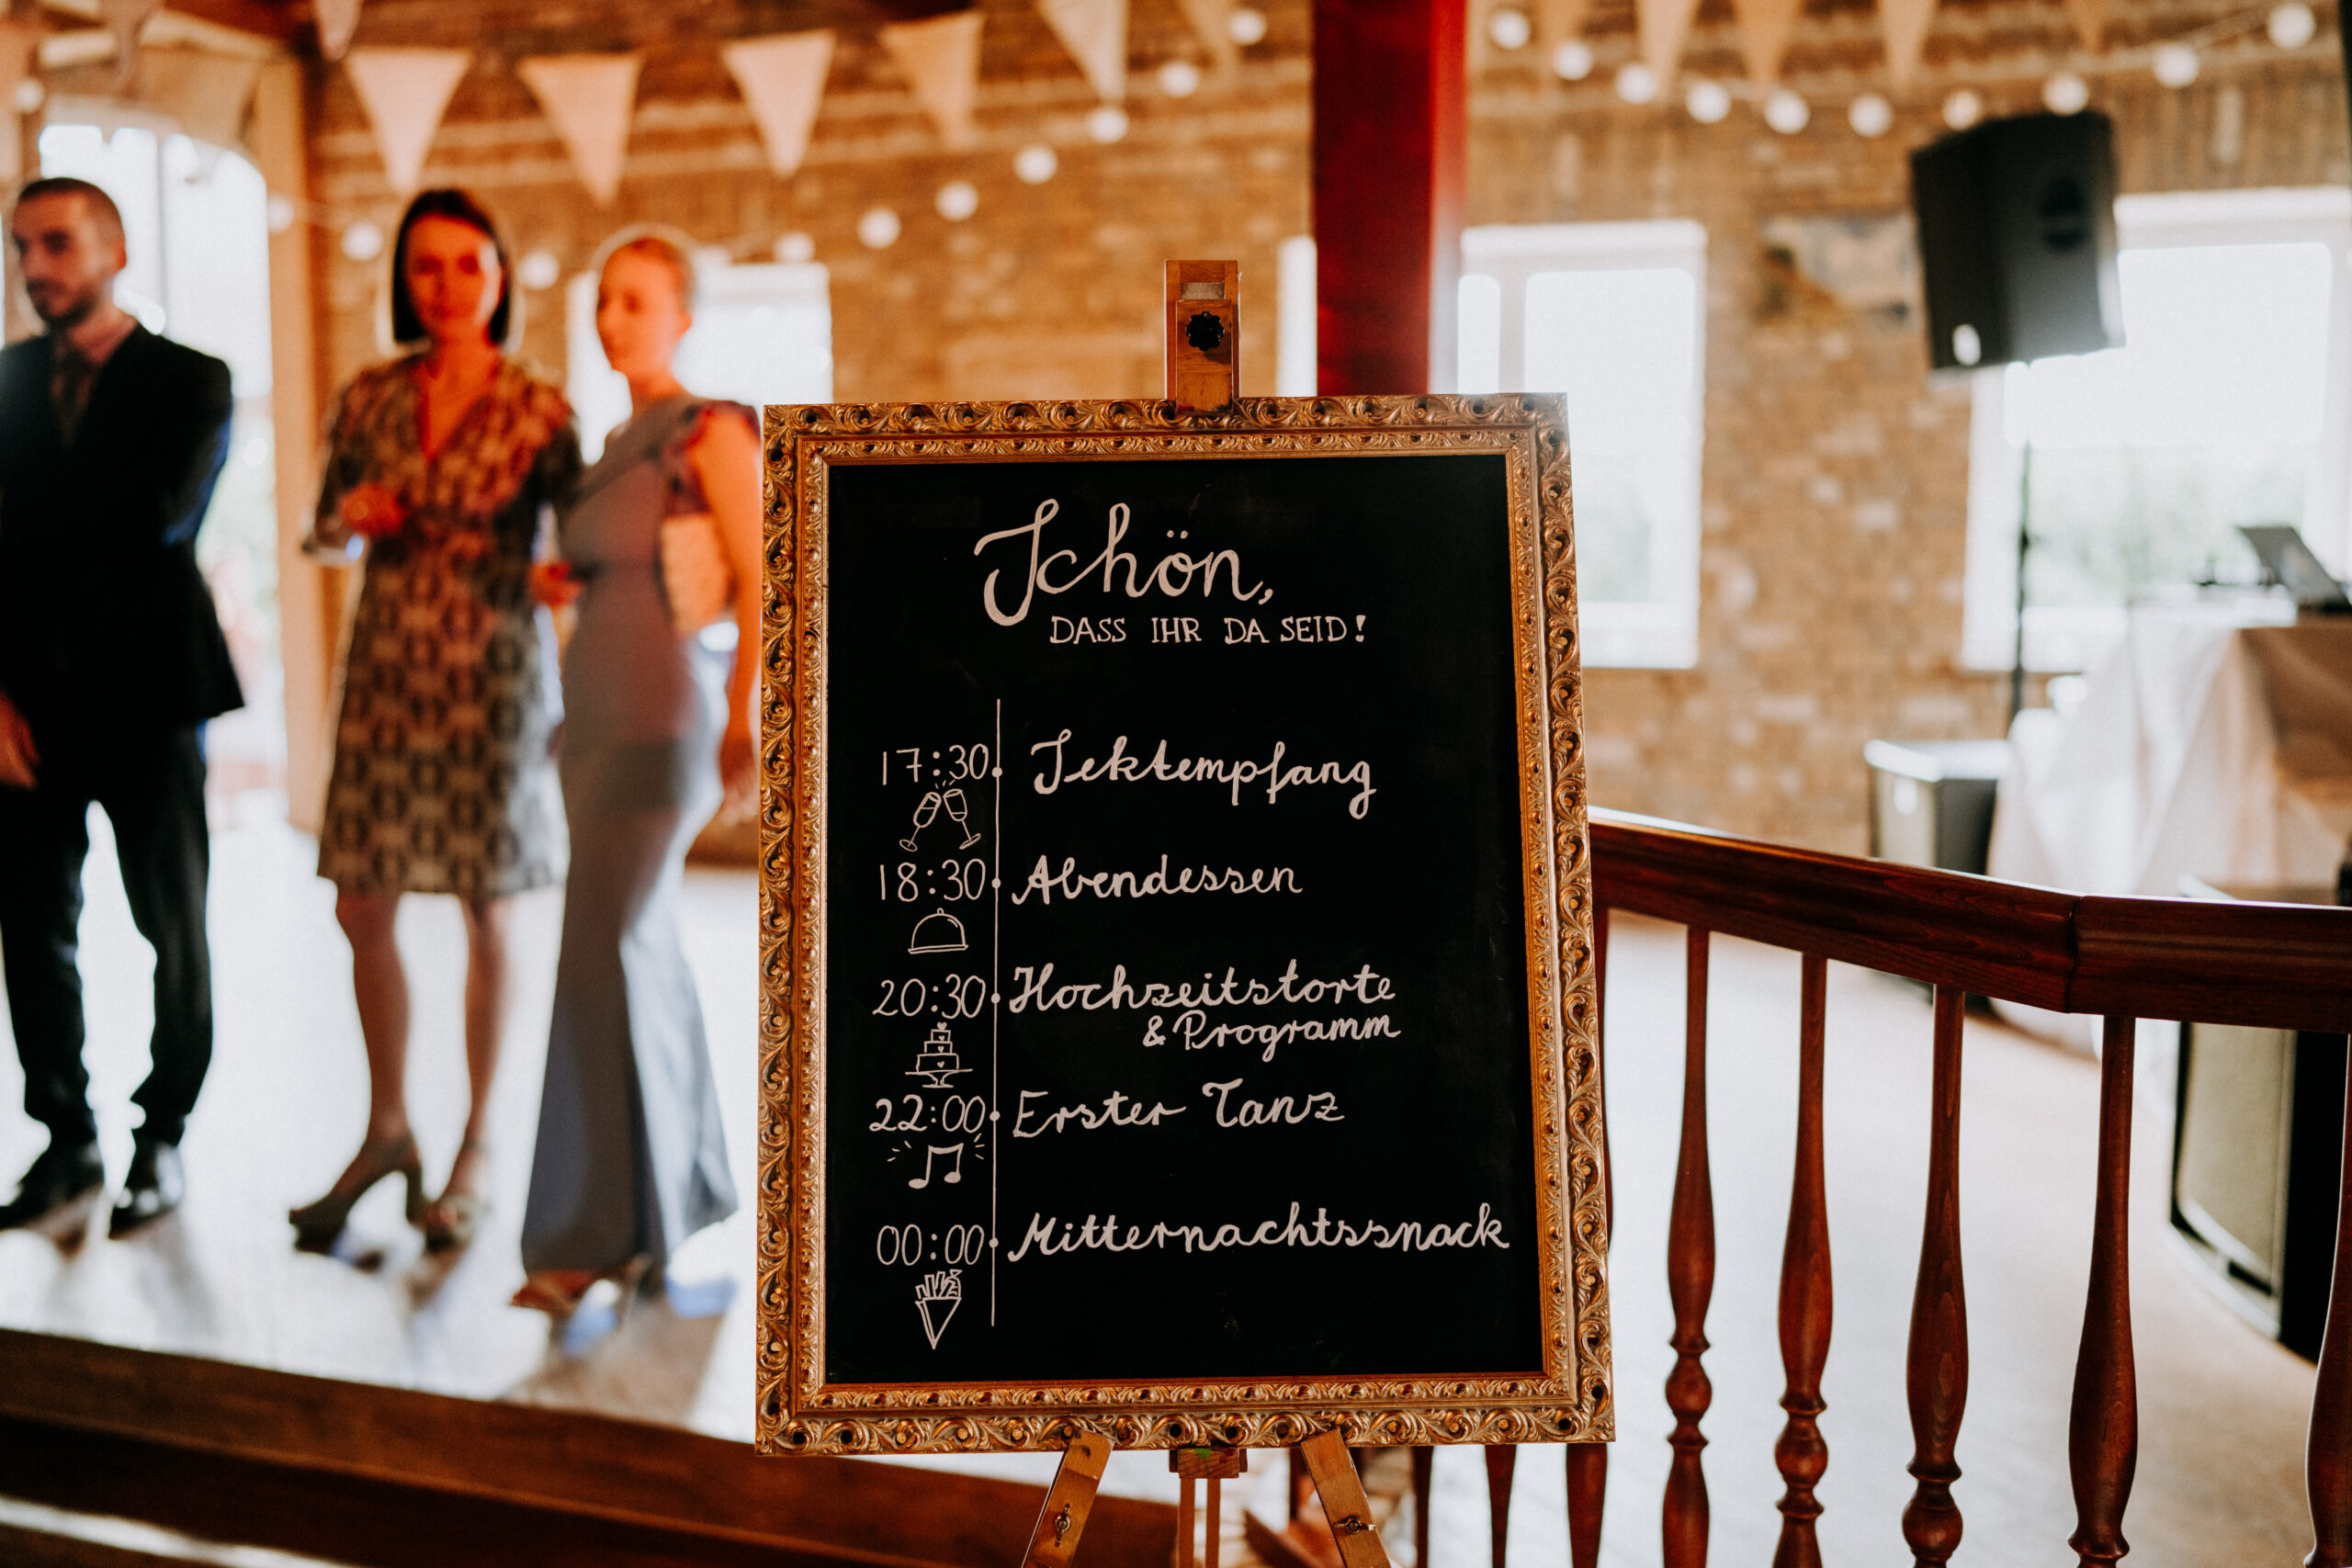 Schön,
DASS IHR DA SEID!
17:30 Sektempfang
18:30 Abendessen
20:30 Hochzeitstorte
& Programm
22:00 Erster Tanz
00:00 Mitternachtssnack